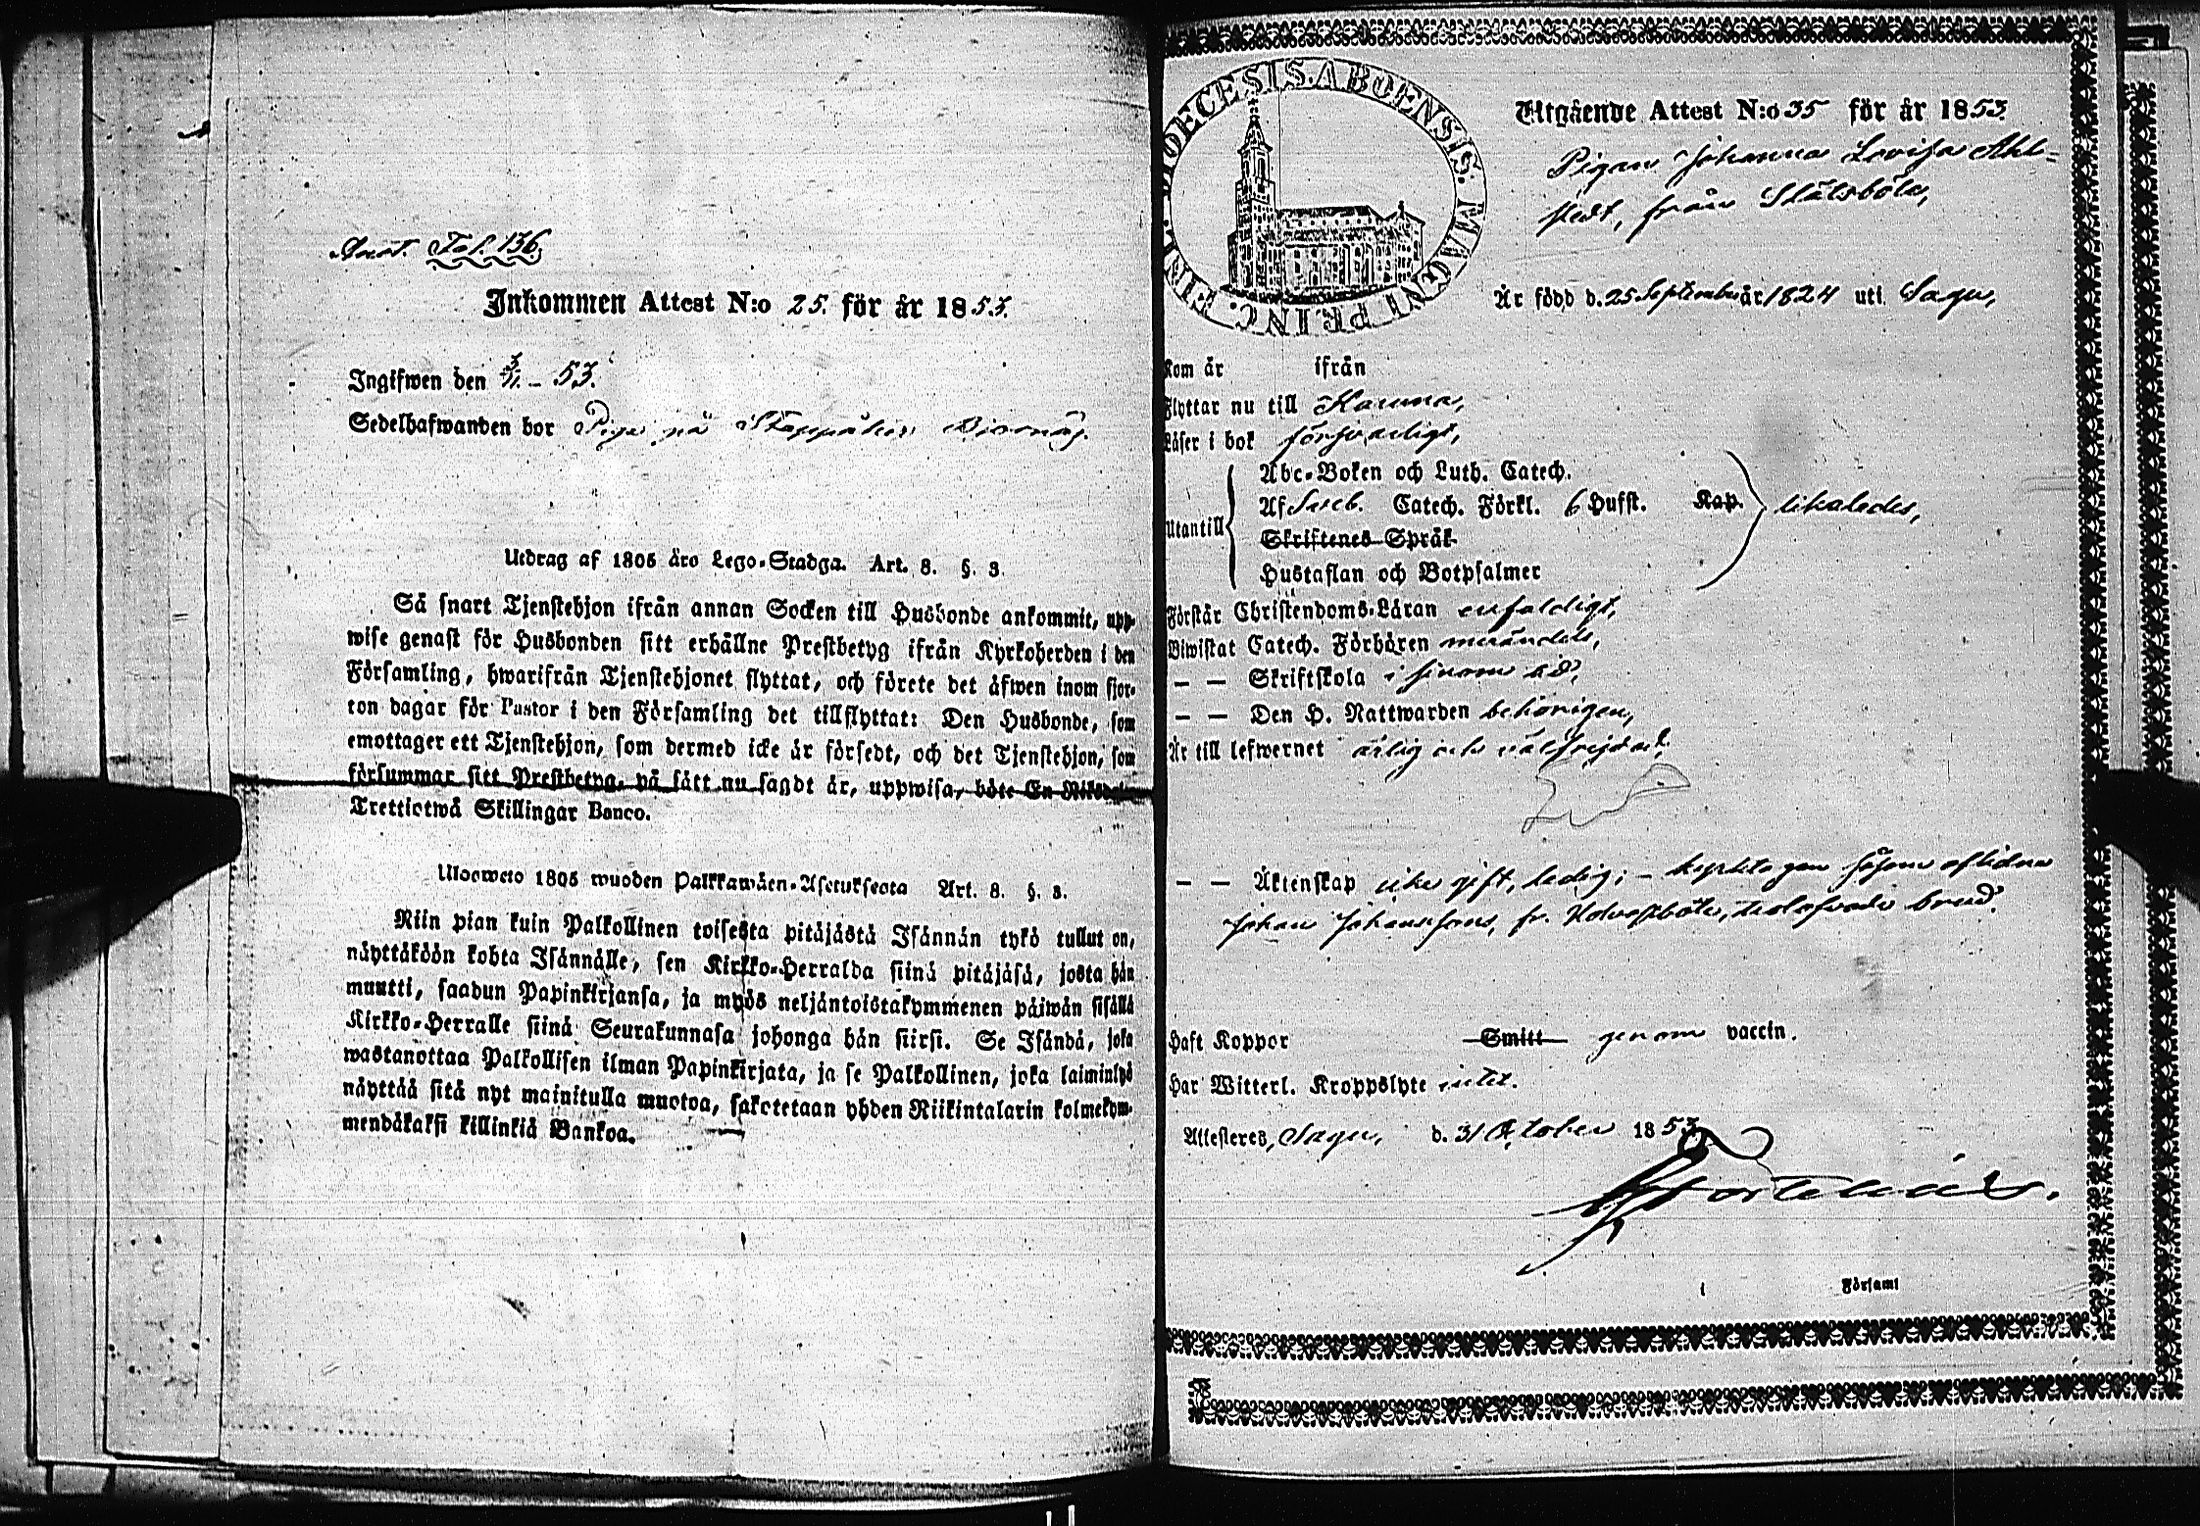 Anot. Fol. 136.
Inkommen Attest N:o 25. för år 1853.
Ingifwen den 3/11. – 53.
Sedelhafwanden bor Piga på
Utdrag af 1805 års Lego-Stadga. Art. 8. §. 3.
Så snart Tjenstehjon ifrån annan Socken till Husbonde ankommit, upp-
wise genast för Husbonden sitt erhållne Prestbetyg ifrån Kyrkoherden i den
Församling, hwarifrån Tjenstehjonet flyttat, och förete det äfwen inom fjor-
ton dagar för Pastor i den Församling det tillflyttat: Den Husbonde, som
emottager ett Tjenstehjon, som dermed icke är försedt, och det Tjenstehjon, som
försummar sitt Prestbetyg, på sätt nu sagdt är, uppwisa, böte En Riksdal.
Trettiotwå Skillingar Banco.
Uloswеto 1805 wuoden Palkkawäen-Asetuksesta Art. 8. §. 3.
Niin pian kuin Palkollinen toisesta pitäjästä Isännän tykö tullut on,
näyttäköön kohta Isännälle, sen Kirkko-Herralda siinä pitäjäsä, josta hän
muutti, saadun Papinkirjansa, ja myös neljäntoistakymmenen päiwän sisällä
Kirkko-Herralle siinä Seurakunnasa johonga hän siirsi. Se Isändä, joka
wastanottaa Palkollisen ilman Papinkirjata, ja se Palkollinen, joka laiminlyö
näyttää sitä nyt mainitulla muotoa, sakotetaan yhden Riikintalarin kolmekym-
mendäkaksi killinkiä Bankoa.
DIOECESIS. ABOENSIS. MAGNI PRINC. FINL.
Utgående Attest N:o 35 för år 1853.
Pigan Johanna Lovisa Ahl-
stedt, från
Är född d. 25 September år 1824 uti Sagu,
Kom år ifrån
Flyttar nu till Karuna,
Läser i bok försvarligt,
Utantill
Abc-Boken och Luth. Catech.
Af Sveb. Catech. Förkl. 6 Hufst. Kap. likaledes,
Skriftenes Språk
Hustaflan och Botpsalmer
Förstår Christendoms-Läran enfaldigt,
Biwistat Catech. Förhören
– – Skriftskola i sinom tid,
– – Den H. Nattwarden behörigen,
Är till lefwernet ärlig och välfrejdad,
– – Äktenskap icke gift, ledig; – aflidna
Johan Johanssons, fr. brud.
Haft Koppor Smitt genom vaccin.
Har Witterl. Kroppslyte intet.
Attesteres, Sagu, d. 31 October 1853
i Församl